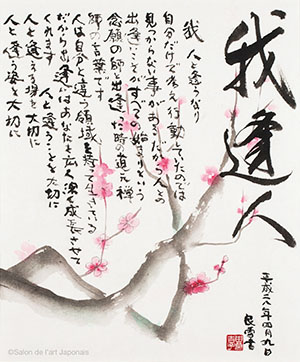 我逢人
我 人と逢うなり
自分だけで考え行動していたのでは
見つからない事がある だから人との
出逢いこそがすべての始まりという
念願の師と出逢った時の道元禅
師の言葉です
人は自分と違う領域を持って生きている
だから出逢いはあなたを広く深く成長させて
くれます 人と逢うことを大切に
人と逢える場を大切に
人と逢う姿を大切に
平成二八年四月九日
©Salon de l'art Japonais